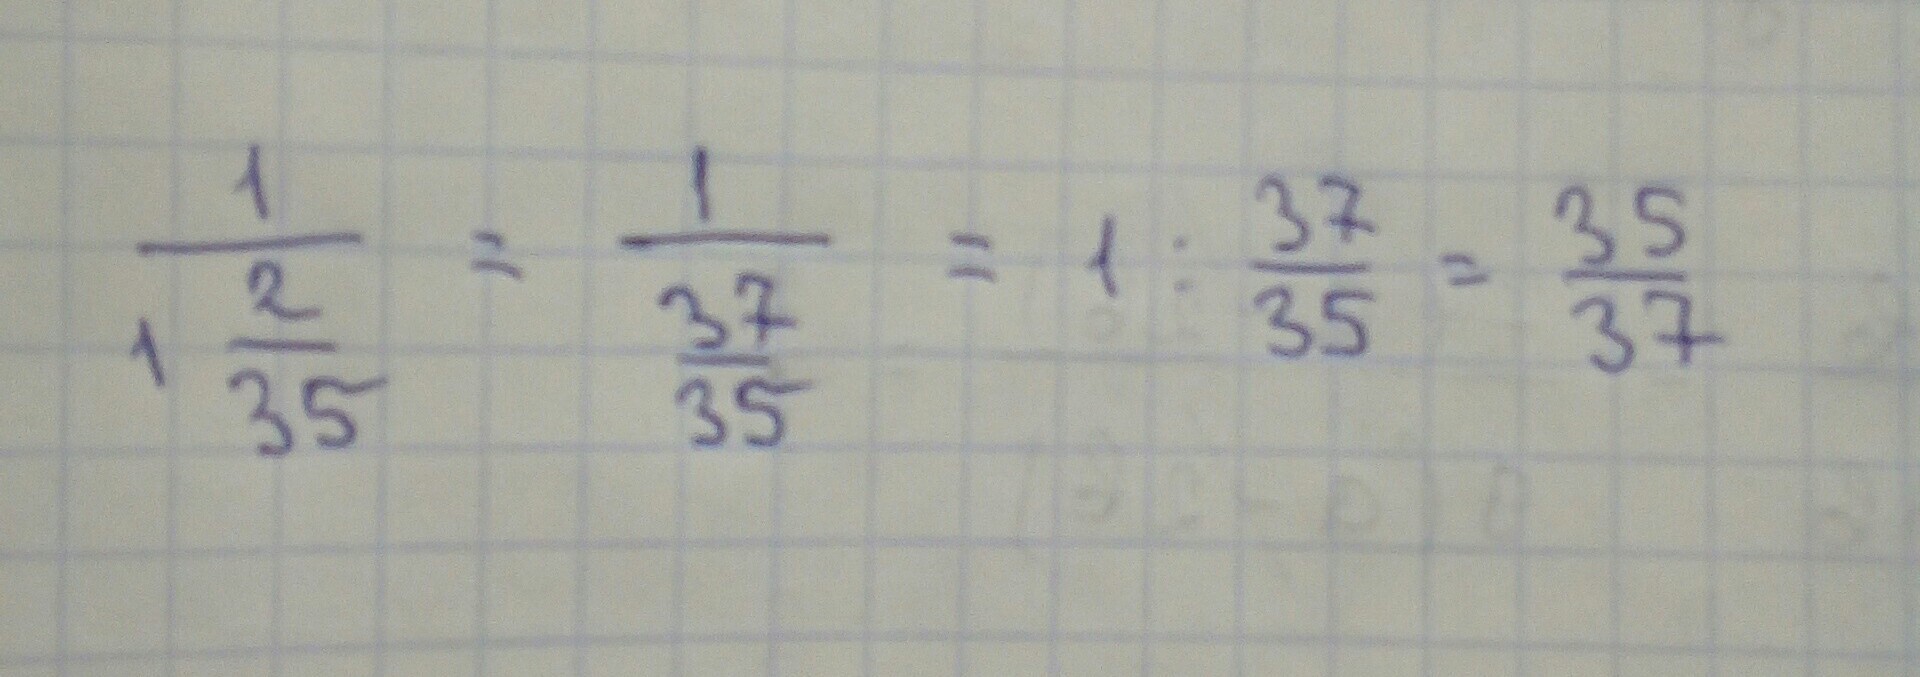 1/(1 2/35) = 1/(37/35) = 1 : 37/35 = 35/37